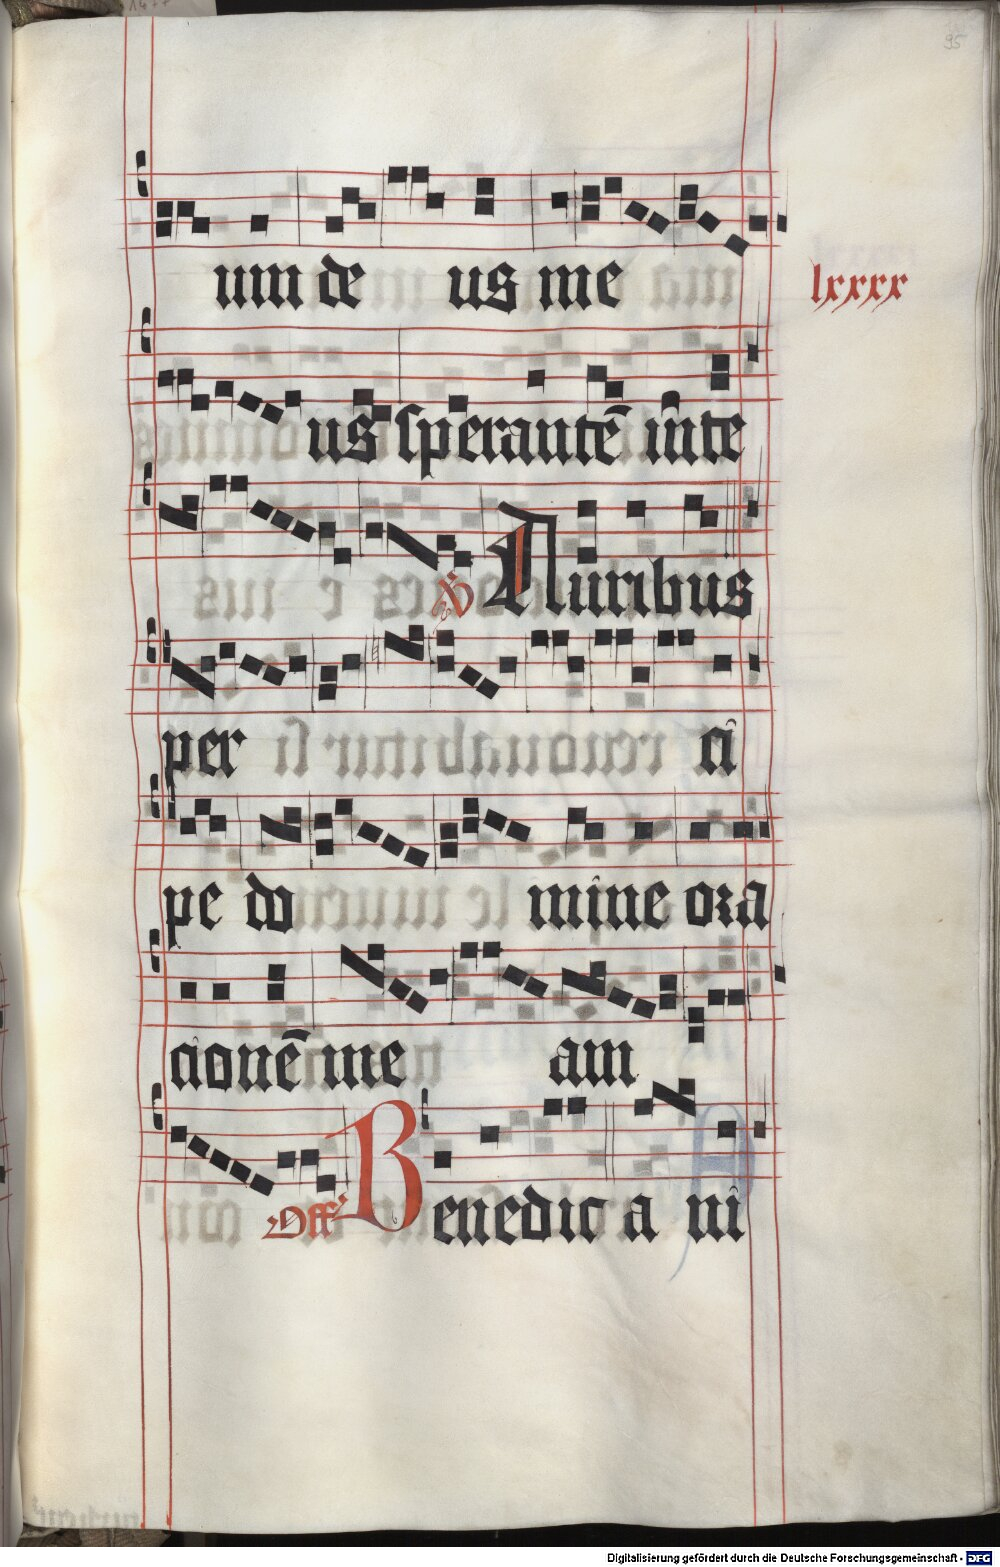 95
um de us me
lxxxx
us sperantē in te
℣ Auribus
per ci
pe do mine ora
cionē me am
Off Benedic a ni
Digitalisierung gefördert durch die Deutsche Forschungsgemeinschaft - DFG